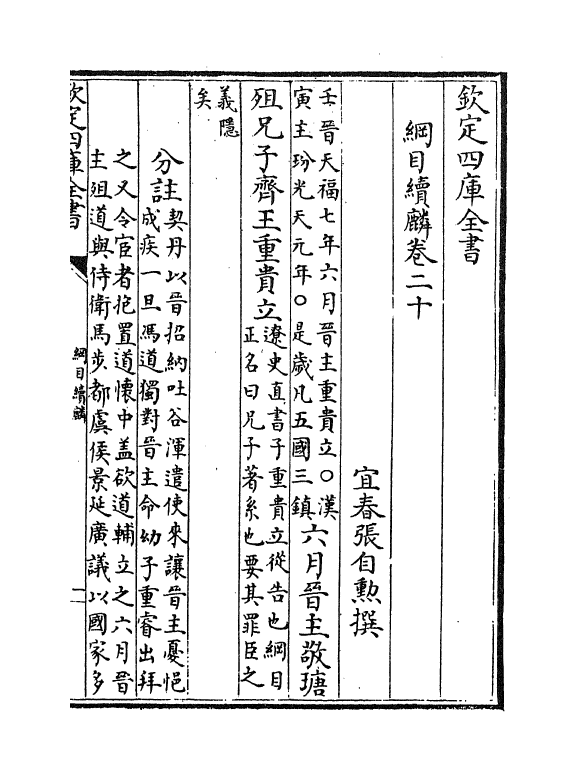 欽定四庫全書
綱目續麟卷二十
宜春張自勲撰
壬晉天福七年六月晉主重貴立○漢
寅主玢光天元年○是歲凡五國三鎮
六月晉主敬瑭
殂兄子齊王重貴立
遼史直書子重貴立從告也綱目
正名曰兄子著系也要其罪臣之
義隱
矣
分註
契丹以晉招納吐谷渾遣使來讓晉主憂悒
成疾一旦馮道獨對晉主命幼子重睿出拜
之又令宦者抱置道懷中盖欲道輔立之六月晉
主殂道與侍衛馬步都虞侯景延廣議以國家多
欽定四庫全書
綱目續麟
一